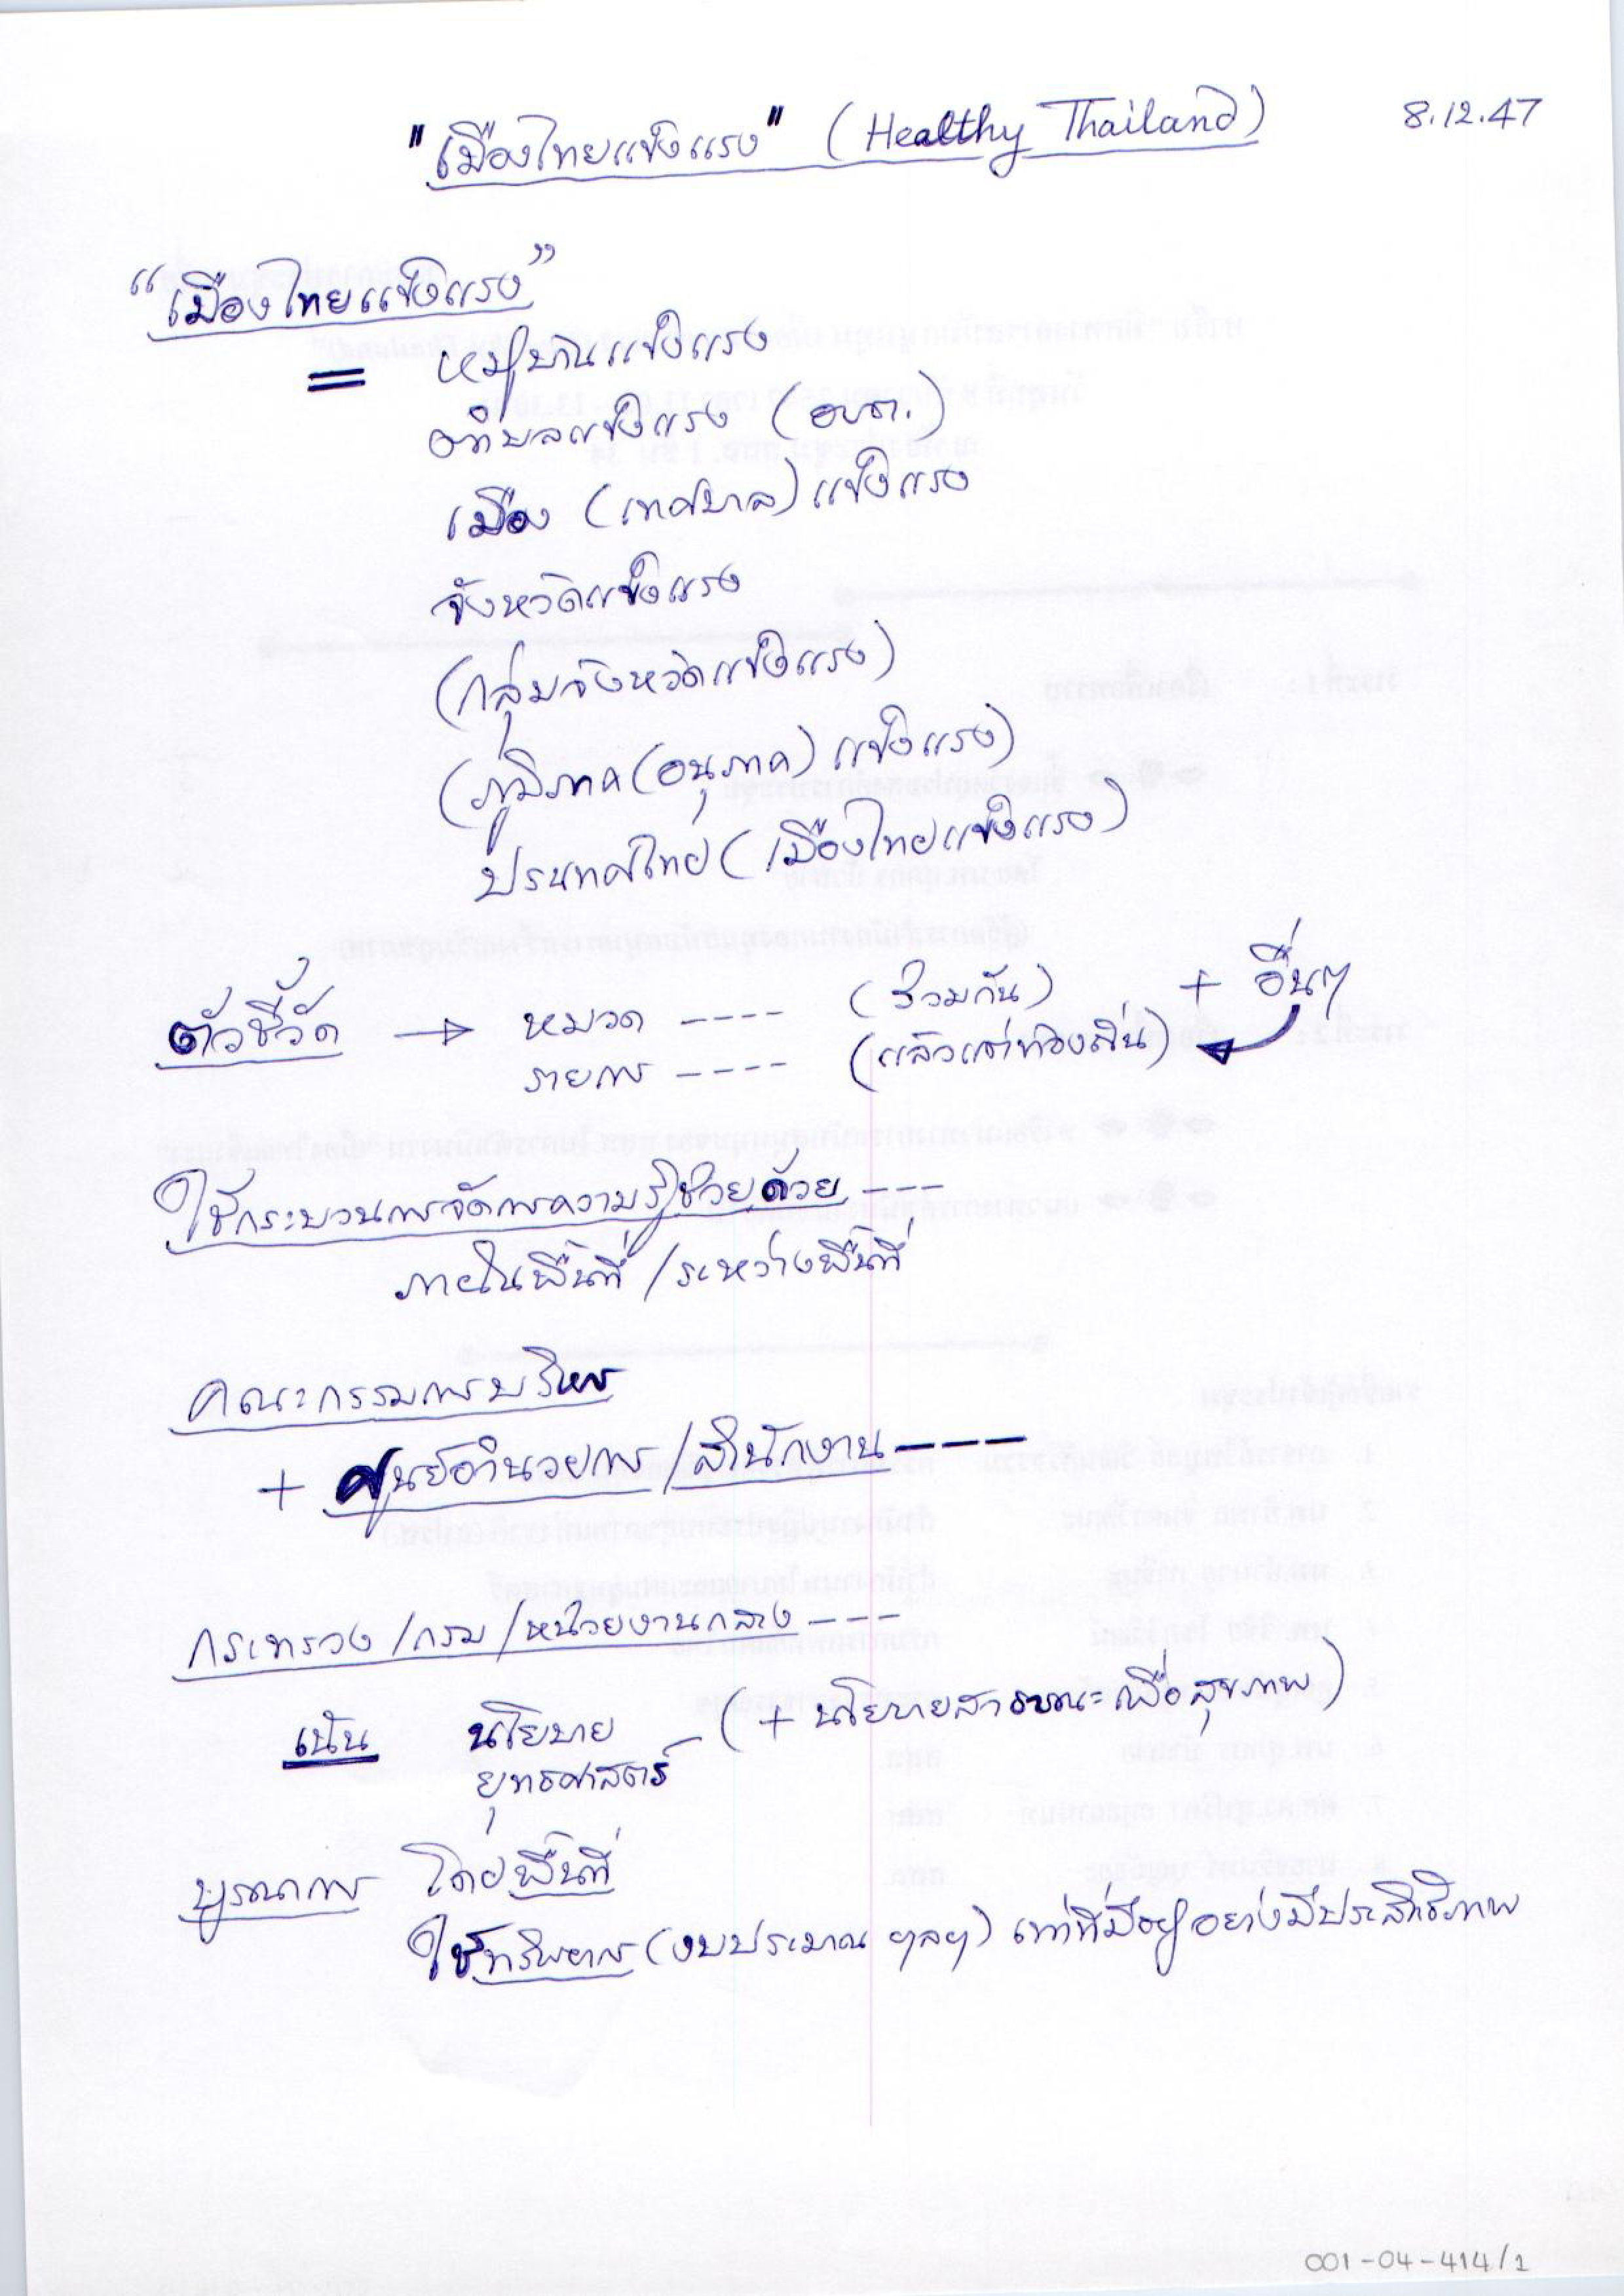 "เมืองไทยแข็งแรง" (Healthy Thailand) 8.12.47
"เมืองไทยแข็งแรง"
= หมู่บ้านแข็งแรง
ตำบลแข็งแรง (อบต.)
เมือง (เทศบาล) แข็งแรง
จังหวัดแข็งแรง
(กลุ่มจังหวัดแข็งแรง)
(ภูมิภาค (อนุภาค) แข็งแรง)
ประเทศไทย (เมืองไทยแข็งแรง)
ตัวชี้วัด → หมวด ---- (ร่วมกัน) + อื่นๆ
รายการ ---- (แล้วแต่ท้องถิ่น)
ใช้กระบวนการจัดการความรู้ช่วยด้วย ---
ภายในพื้นที่ / ระหว่างพื้นที่
คณะกรรมการบริหาร
+ ศูนย์อำนวยการ / สำนักงาน ---
กระทรวง / กรม / หน่วยงานกลาง ---
เน้น นโยบาย (+ นโยบายสาธารณะเพื่อสุขภาพ)
ยุทธศาสตร์
บูรณาการ โดยพื้นที่
ใช้ทรัพยากร (งบประมาณ ฯลฯ) เท่าที่มีอยู่อย่างมีประสิทธิภาพ
001-04-414/1